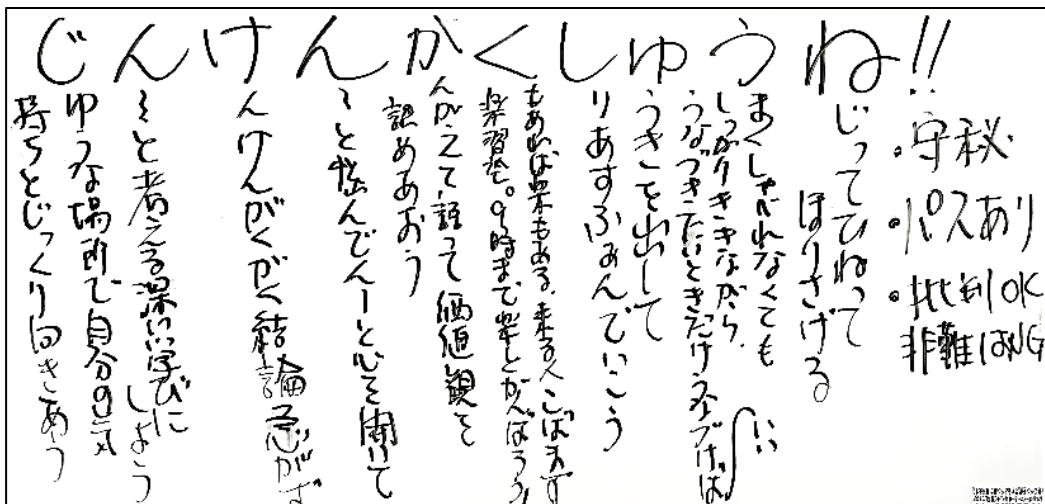 じんけんがくしゅうね!!
・守秘
・パスあり
・批判OK
非難はNG
じってひねって
ほりさげる
まくしゃべれなくても
しっかりききながら、
うなづきたいときだけうなづけばいい
うきを出して
りあすふぁんでいこう
もあれば楽もある。来る人こばまず
楽習塾。9時まで楽しくがんばろう!
んがえて、語って価値観を
認めあおう
んと悩んでんーと心を開いて
んけんがくがく結論急がず
んと考える深いい学びに
しよう
ゆうな場所で自分の気
持ちとじっくり向きあう